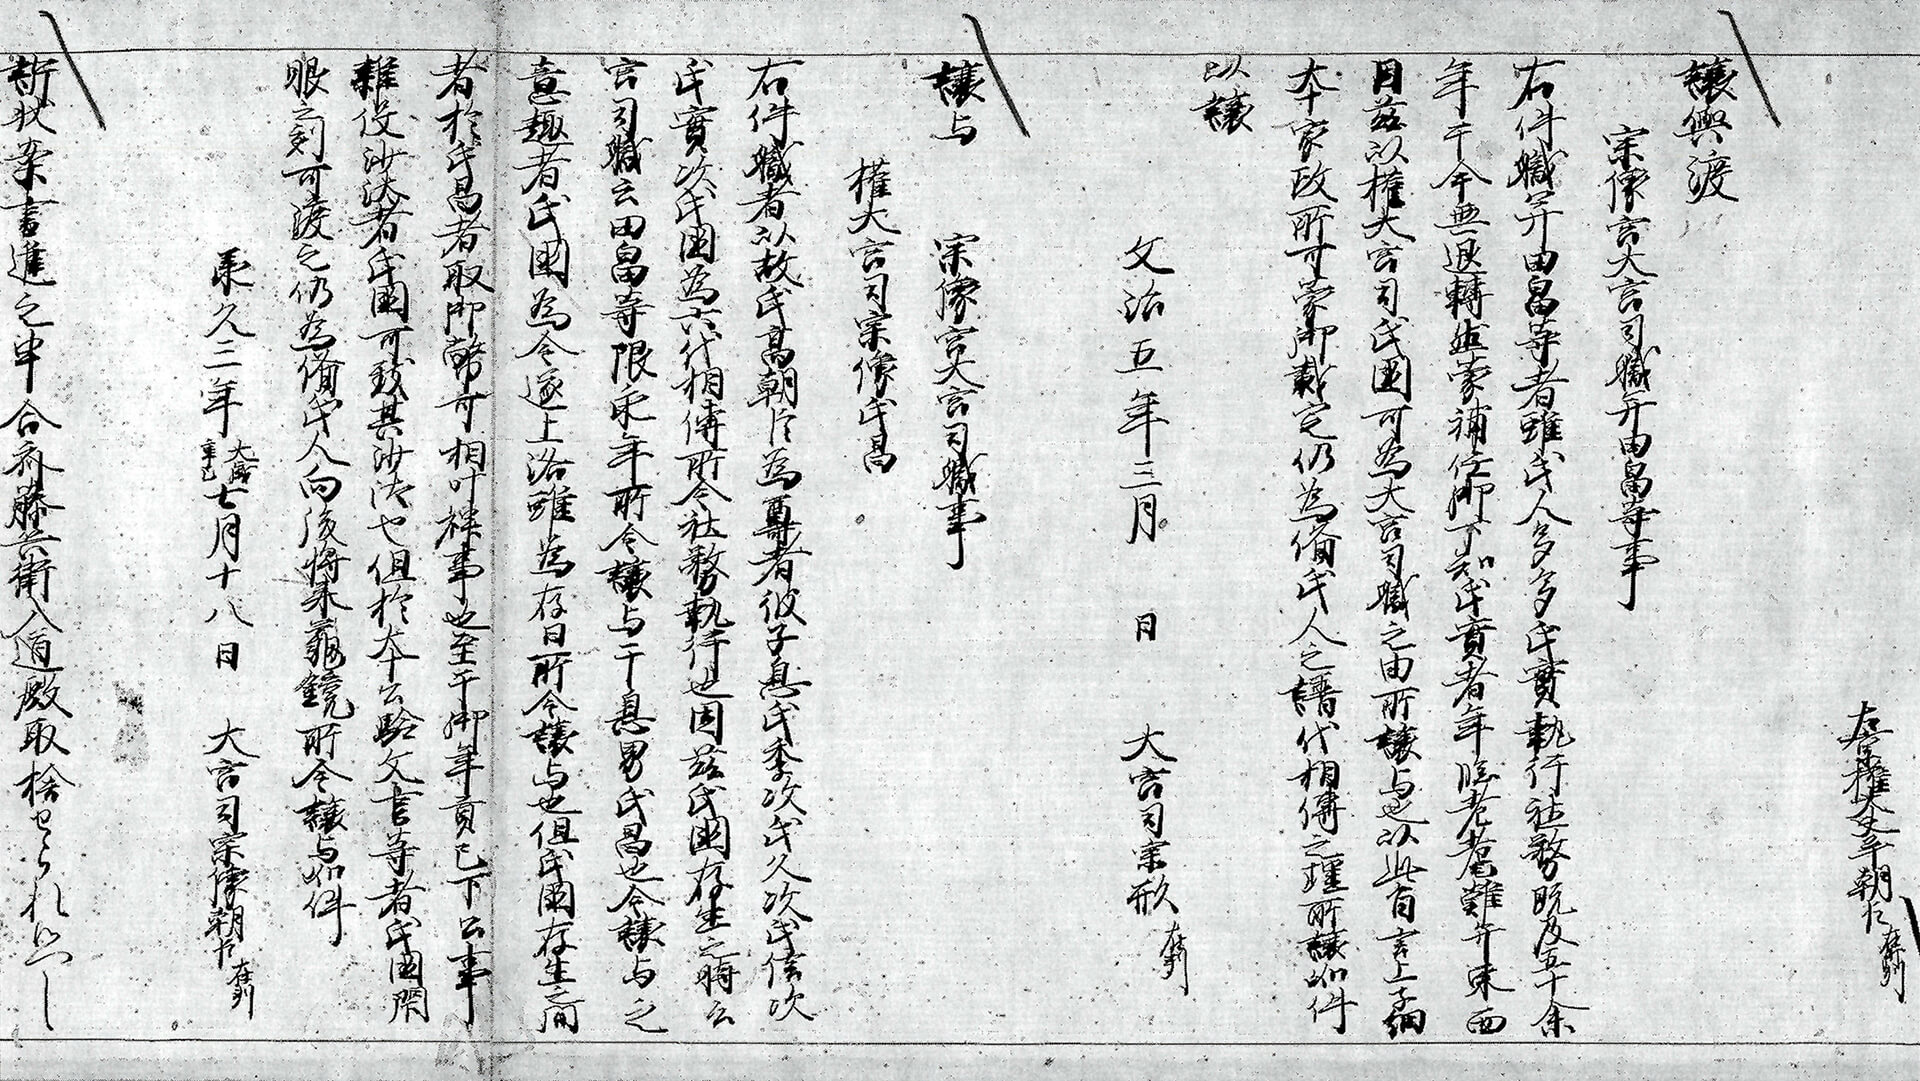 右京権大夫平朝臣在判
譲與渡
宗像宮大宮司職并田畠等事
右件職并田畠等者雖氏人多々氏實執行社務既及五十余
年于今無退轉蒙補任御下知氏實者年臨老耄難弁東西
因茲以權大宮司氏國可為大宮司職之由所譲与也以此旨言上子細
本家政所可蒙御裁定仍為備氏人之譜代相傳之理所譲如件
以譲
文治五年三月 日 大宮司宗形在判
譲与 宗像宮大宮司職事
權大宮司宗像氏昌
右件職者以故氏高朝臣為尊者彼子息氏季次氏久次氏信次
氏實次氏國為六代相傳所令社務執行也因茲氏國存生之時云
宮司職云田畠等限永年所令譲与于息男氏昌也令譲与之
意趣者氏國為令遂上洛雖為存日所令譲与也但氏國存生之間
者於氏昌者取御幣可相叶祥事也至于御年貢已下公事
雜役沙汰者氏國可致其沙汰也但於本公驗文書等者氏國閇
眼之刻可渡之仍為備氏人向後將來龜鏡所令譲与如件
承久三年大歳辛巳七月十八日 大宮司宗像朝臣在判
訴状案書進之申合斉藤兵衛入道殿取捨せられ候へし